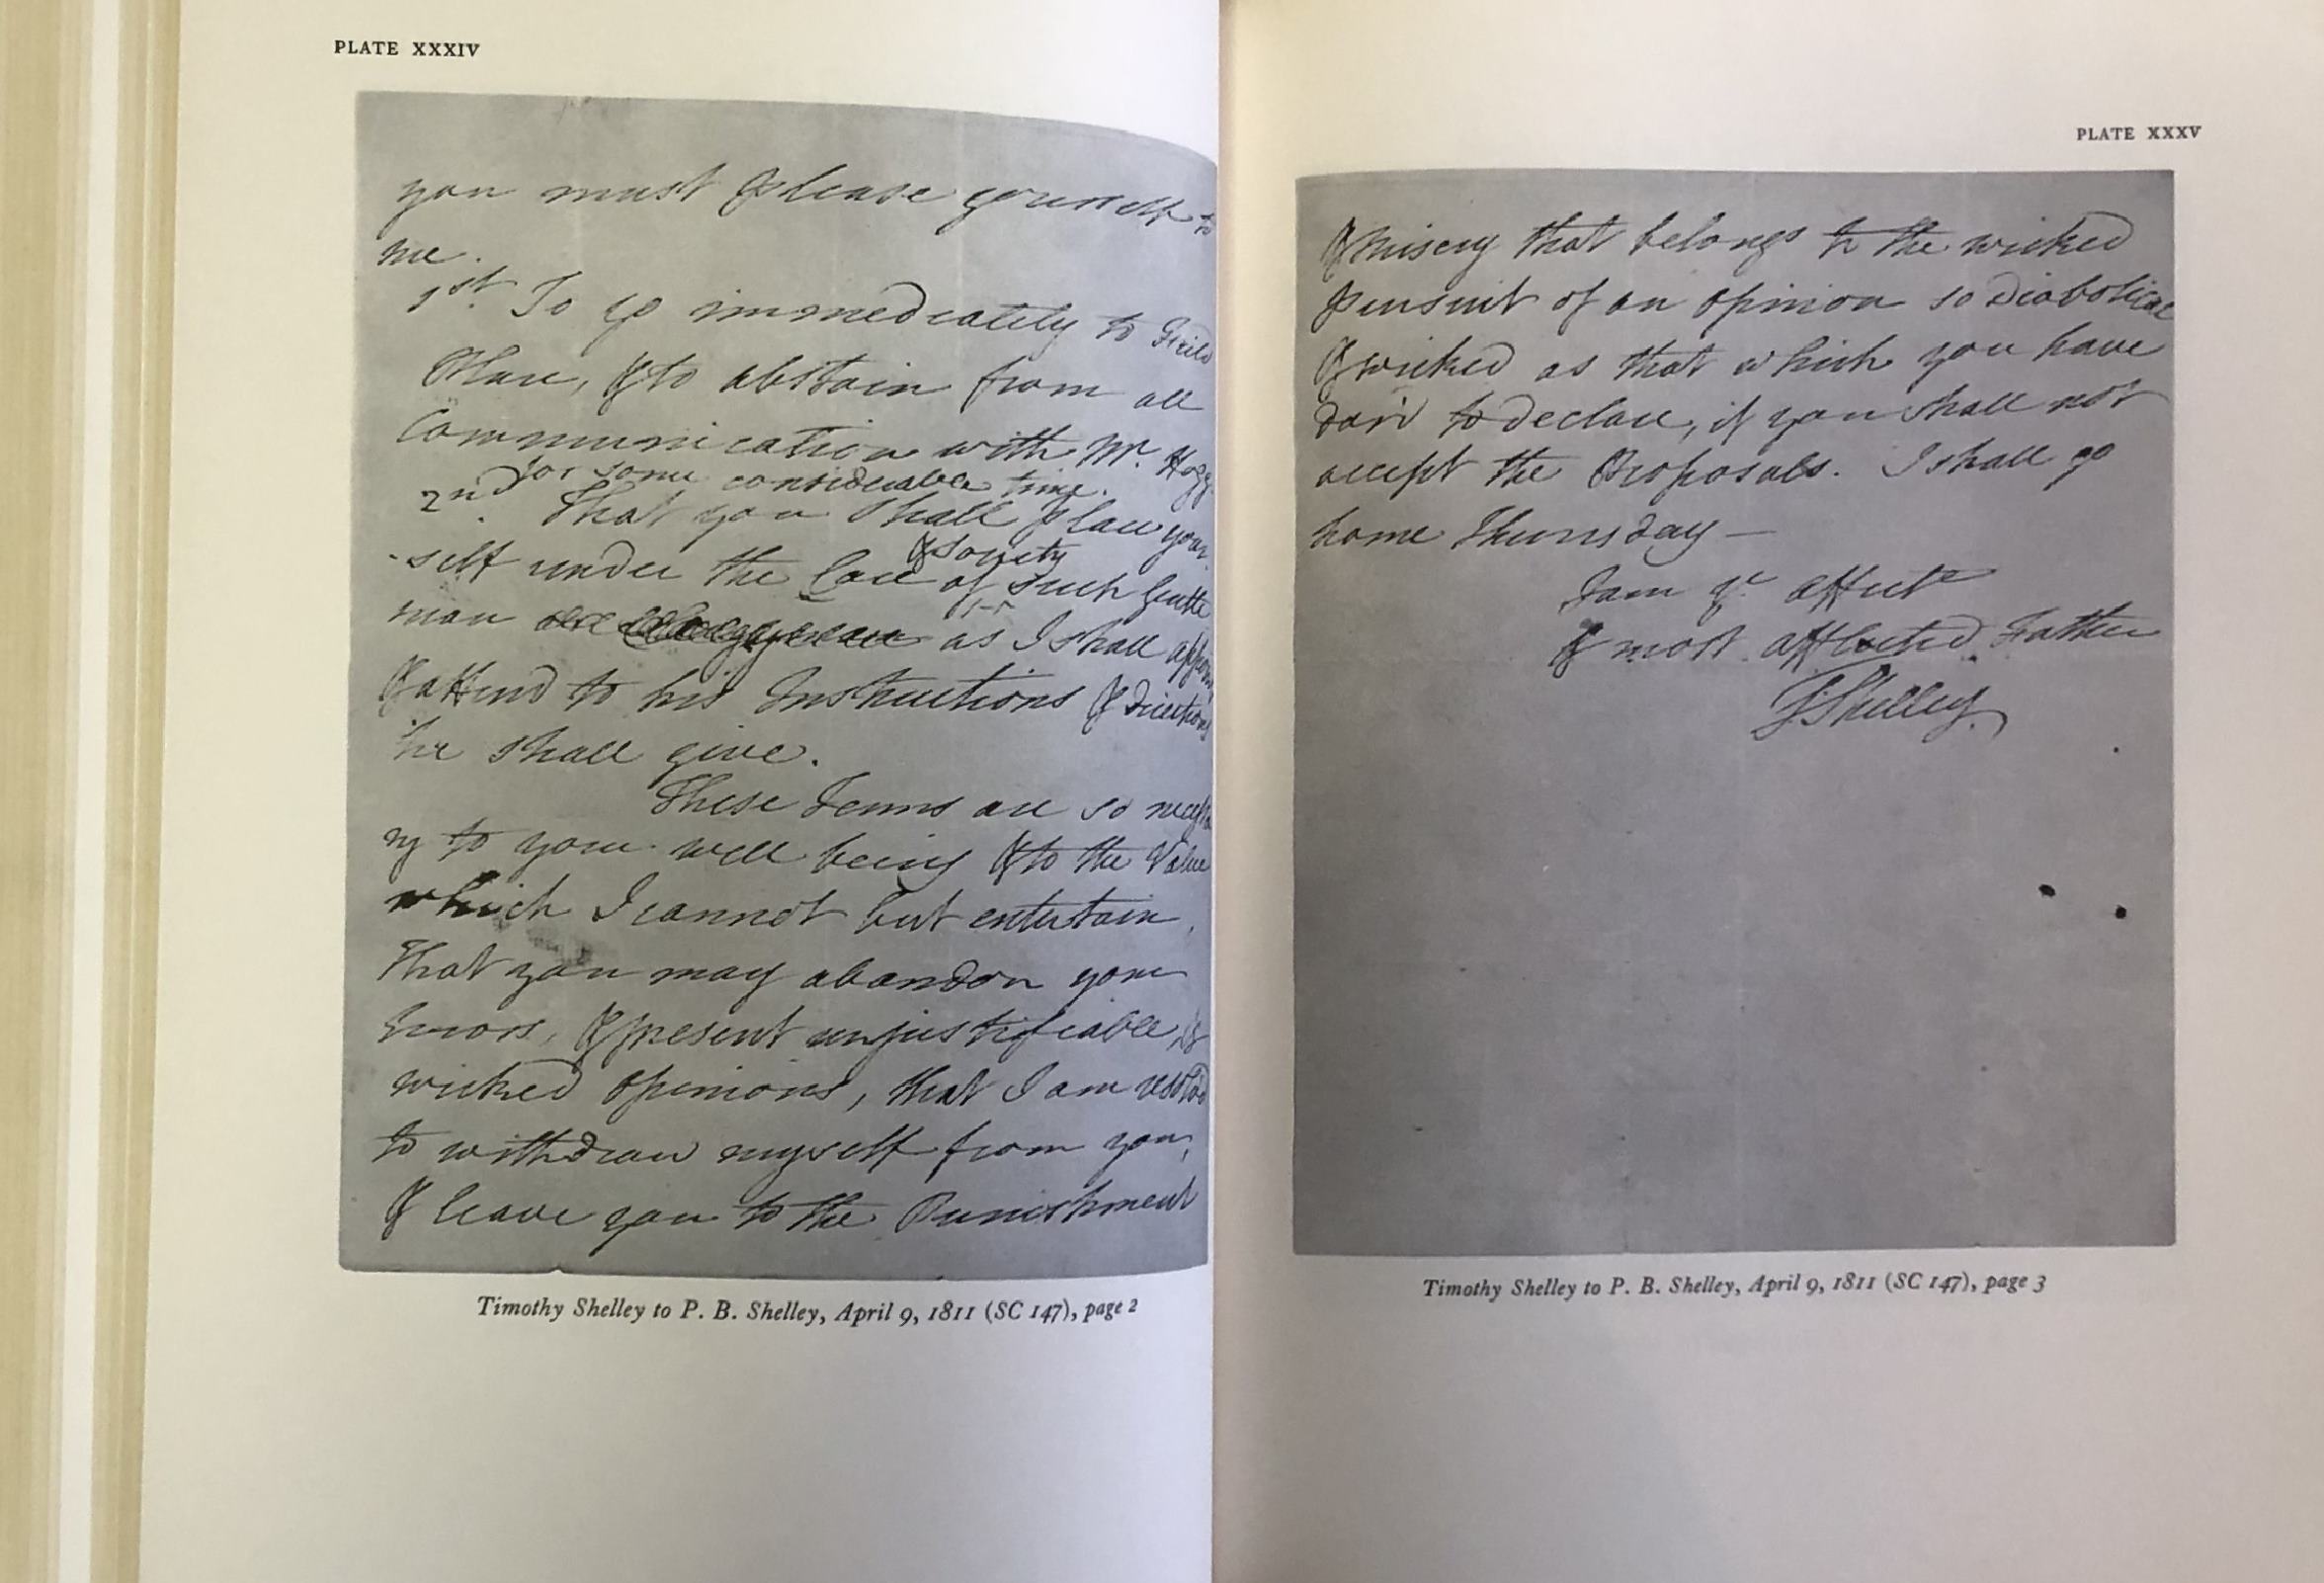 PLATE XXXIV
you must please yourself to
me.
1st. To go immediately to Field
Place, & to abstain from all
Communication with Mr. Hogg
for some considerable time.
2nd. That you shall place your
-self under the Care & Society of such Gentle
man as I shall appoint
& attend to his Instructions & Directions
he shall give.
These Terms are so necessa
ry to your well being & to the Value
which I cannot but entertain,
That you may abandon your
Errors, & present unjustifiable, &
wicked opinions, that I am resolv'd
to withdraw myself from you,
& leave you to the Punishment
Timothy Shelley to P. B. Shelley, April 9, 1811 (SC 147), page 2
PLATE XXXV
& misery that belongs to the wicked
Pursuit of an opinion so Diabolical
& wicked as that which you have
Dar'd to declare, if you shall not
accept the Proposals. I shall go
home Thursday —
I am yr. affect
& most afflicted Father
T Shelley.
Timothy Shelley to P. B. Shelley, April 9, 1811 (SC 147), page 3